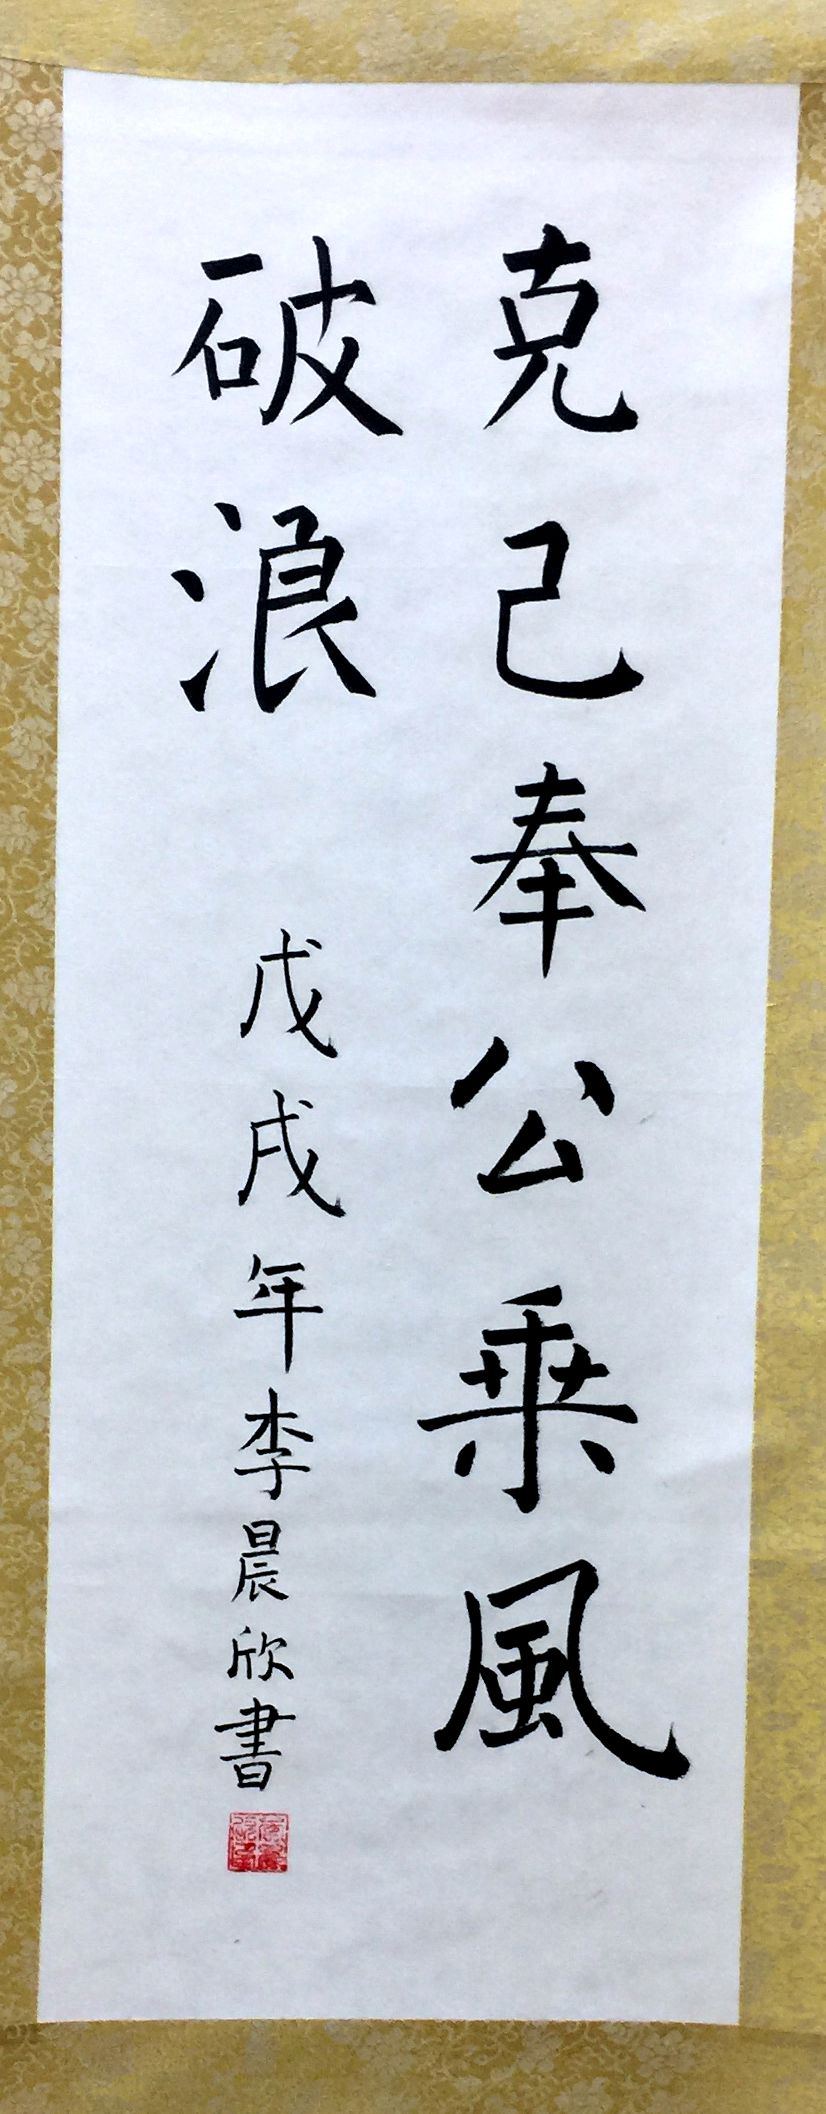 克己奉公乘風
破浪
戊戌年李晨欣書